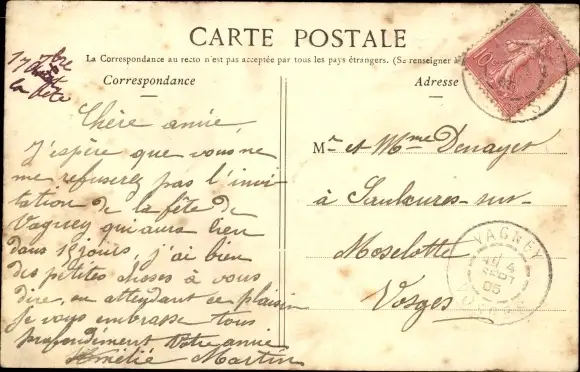 CARTE POSTALE
La Correspondance au recto n'est pas acceptée par tous les pays étrangers. (Se renseigner
Correspondance
Adresse
17 7bre
la fête
Chère amie,
J'espère que vous ne
me refuserez pas l'invi
tation de la fête de
Vagney qui aura lieu
dans 15 jours, j'ai bien
des petites choses à vous
dire, en attendant ce plaisir
je vous embrasse tous
profondément Votre amie
Amélie Martin
Mr et Mme Denayer
à Saulxures-sur-
Moselotte
Vosges
10c
VAGNEY
4
SEPT
05